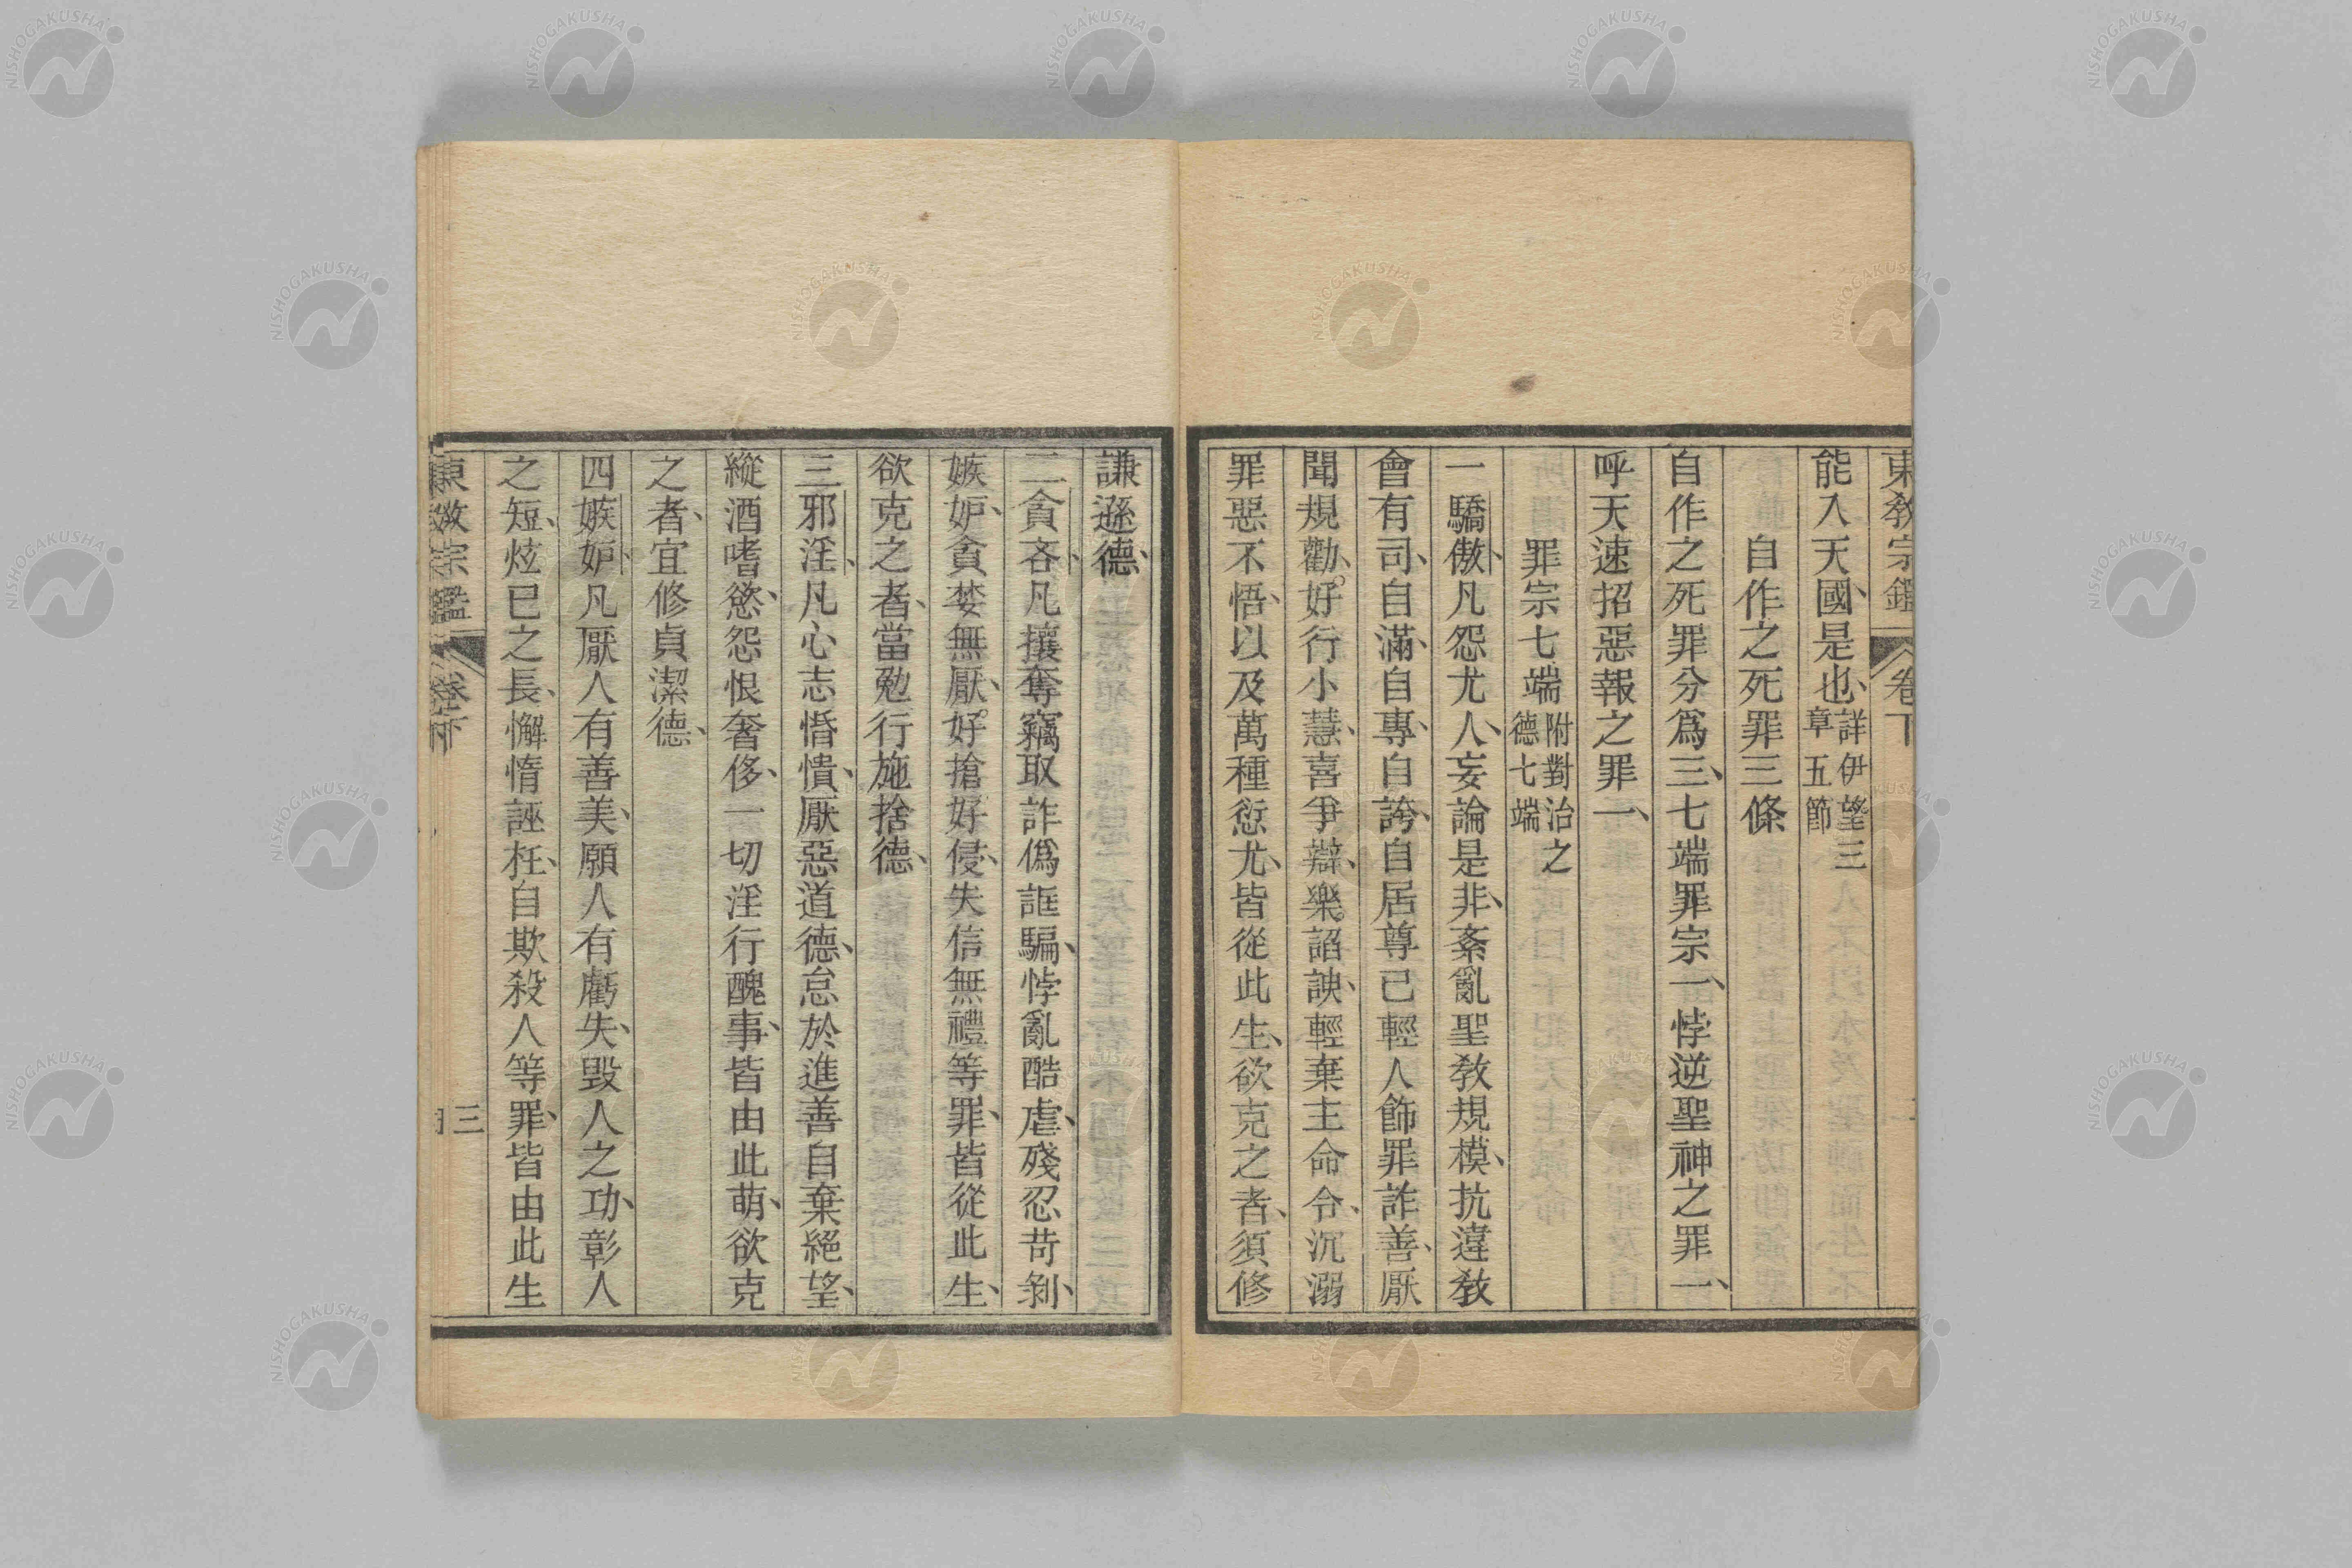 東教宗鑑 卷下
能入天國、是也、詳伊望三章五節
自作之死罪三條
自作之死罪分爲三、七端罪宗一、悖逆聖神之罪一、
呼天速招惡報之罪一、
罪宗七端附對治之德七端
一驕傲、凡怨尤人、妄論是非、紊亂聖教規模、抗違教
會有司、自滿、自專、自誇、自居尊己輕人飾罪詐善、厭
聞規勸、好行小慧、喜爭辯、樂諂諛、輕棄主命令、沉溺
罪惡不悟、以及萬種愆尤、皆從此生、欲克之者、須修
謙遜德、
二貪吝、凡攘奪竊取詐僞誆騙、悖亂酷虐、殘忍苛剝、
嫉妒、貪婪無厭、好搶好侵、失信無禮等罪、皆從此生、
欲克之者、當勉行施捨德、
三邪淫、凡心志惛憒、厭惡道德、怠於進善自棄絕望、
縱酒嗜慾、怨恨奢侈、一切淫行醜事、皆由此萌、欲克
之者、宜修貞潔德、
四嫉妒、凡厭人有善美、願人有虧失、毀人之功、彰人
之短、炫已之長、懈惰誣枉、自欺殺人等罪、皆由此生
東教宗鑑
三